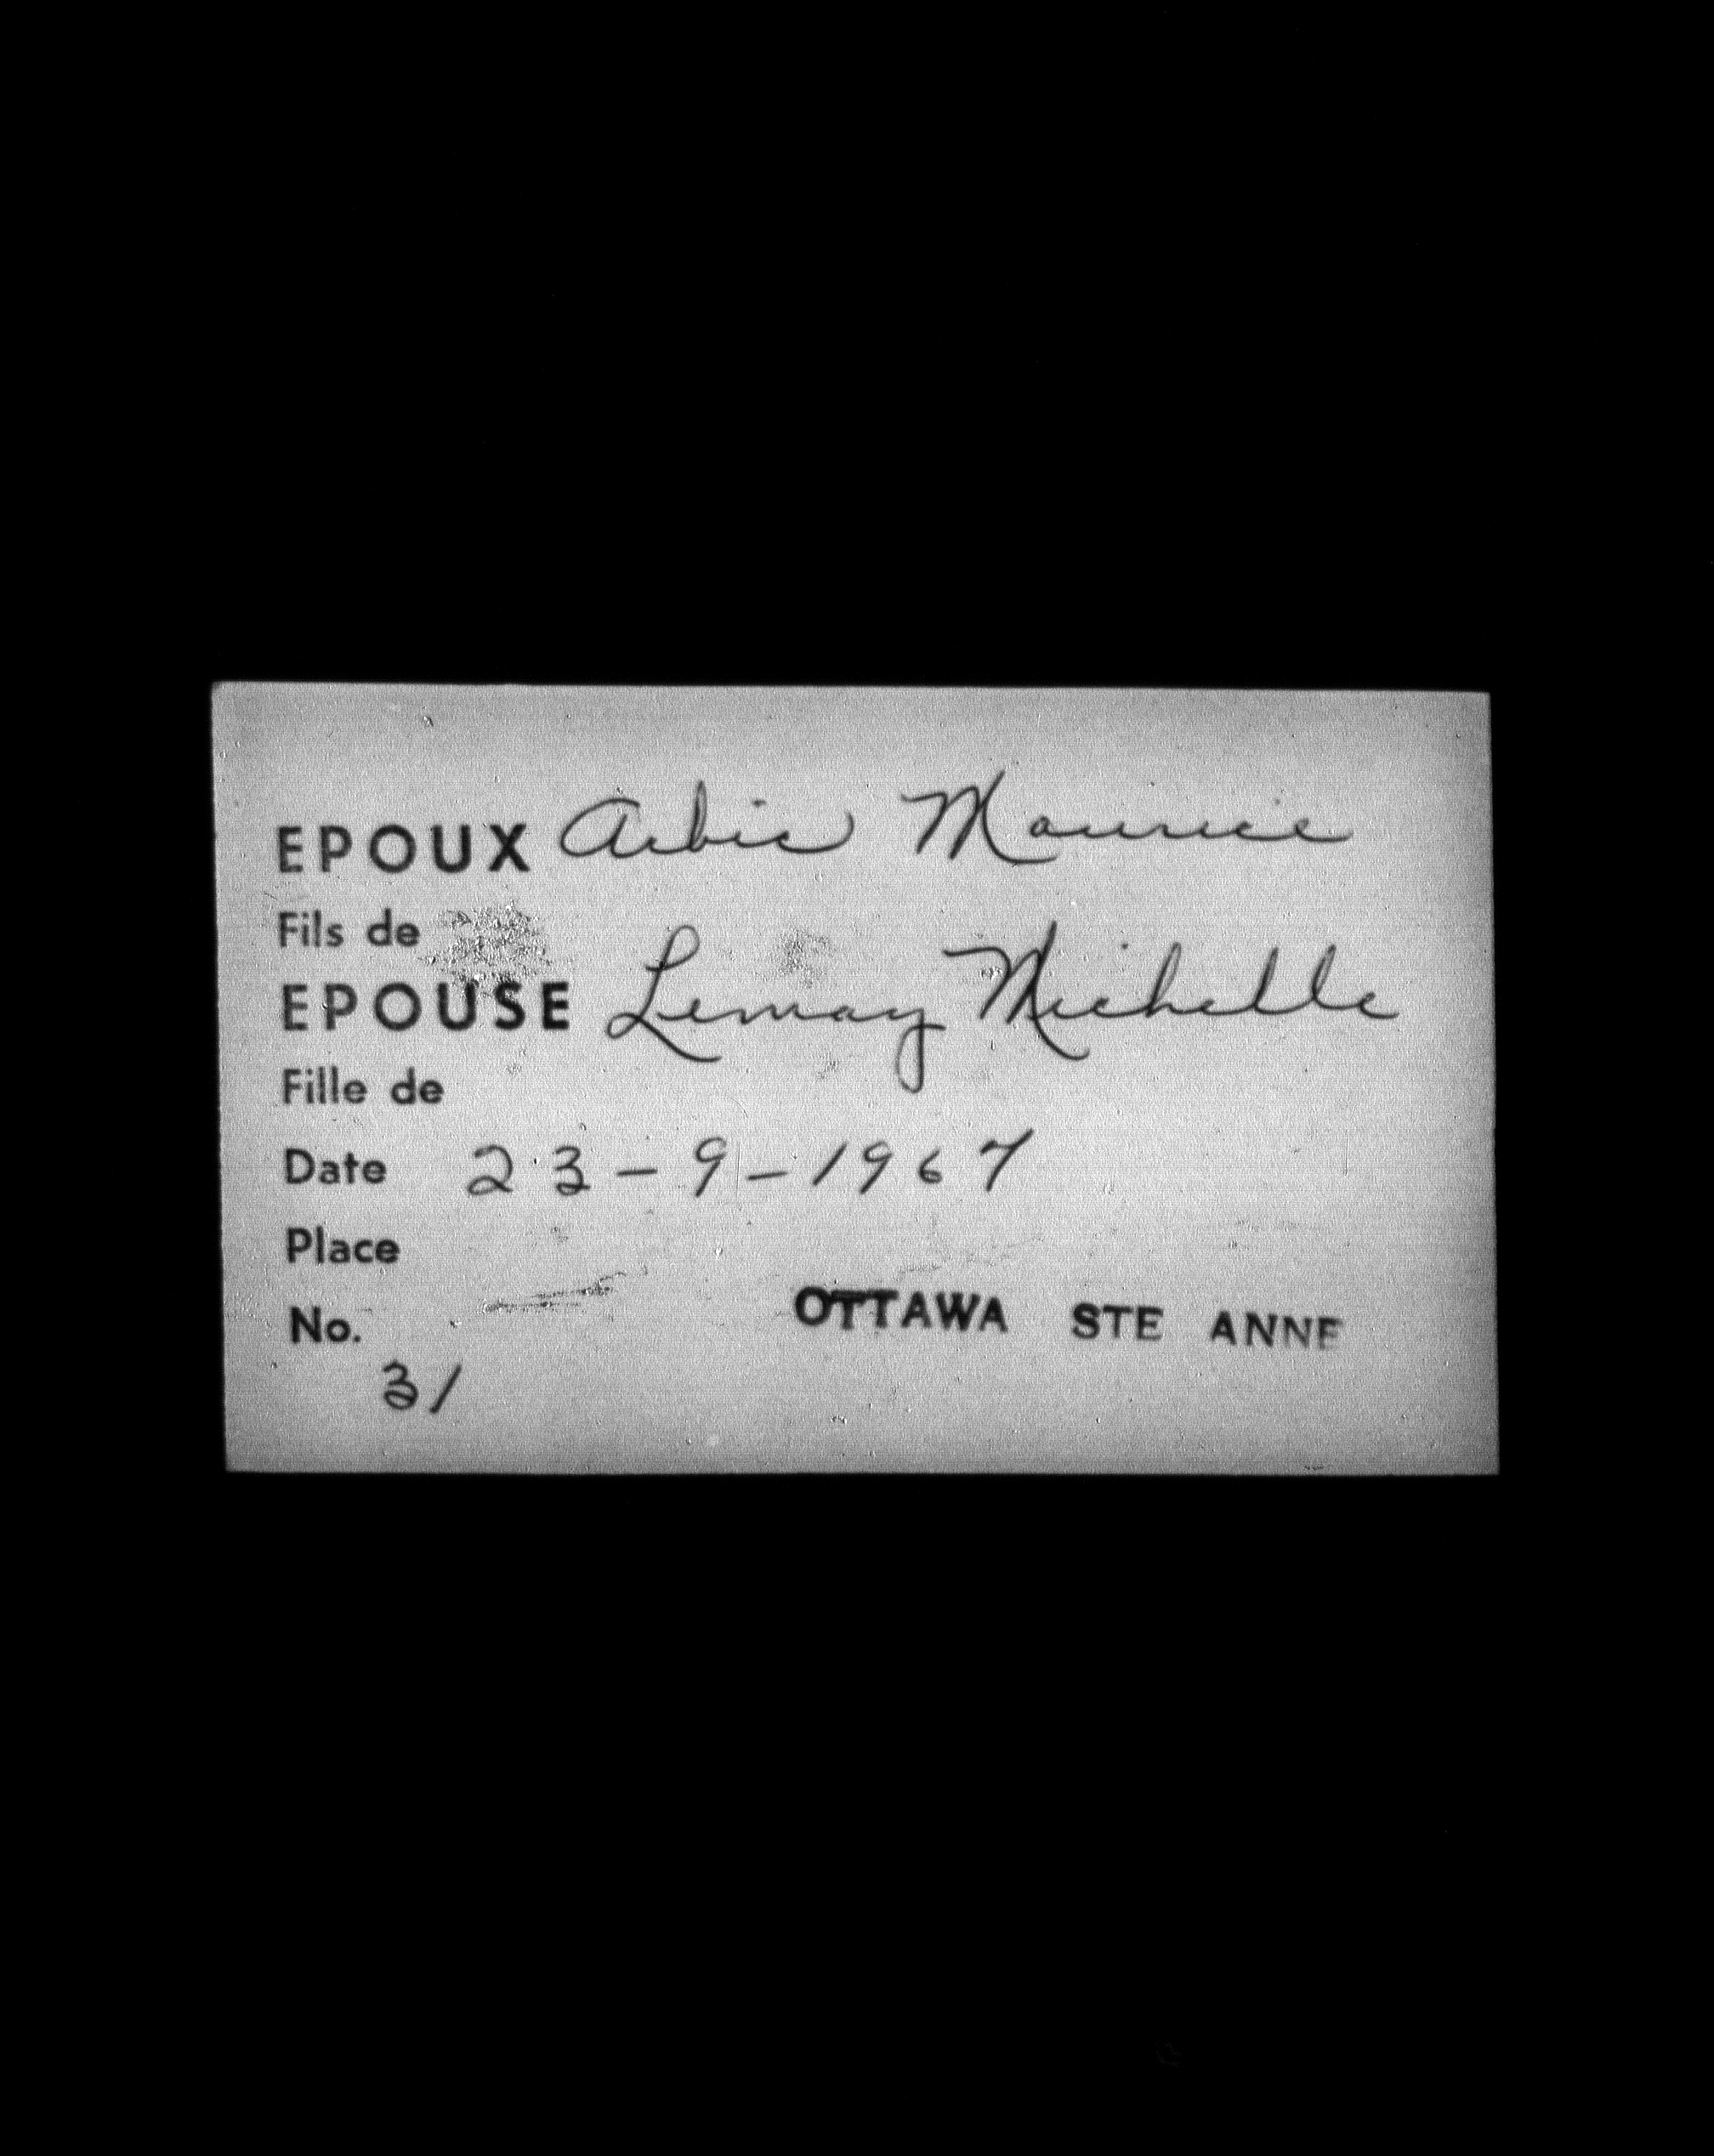 EPOUX Arbic Maurice
Fils de
EPOUSE Lemay Michelle
Fille de
Date 23-9-1967
Place
No. OTTAWA STE ANNE
31